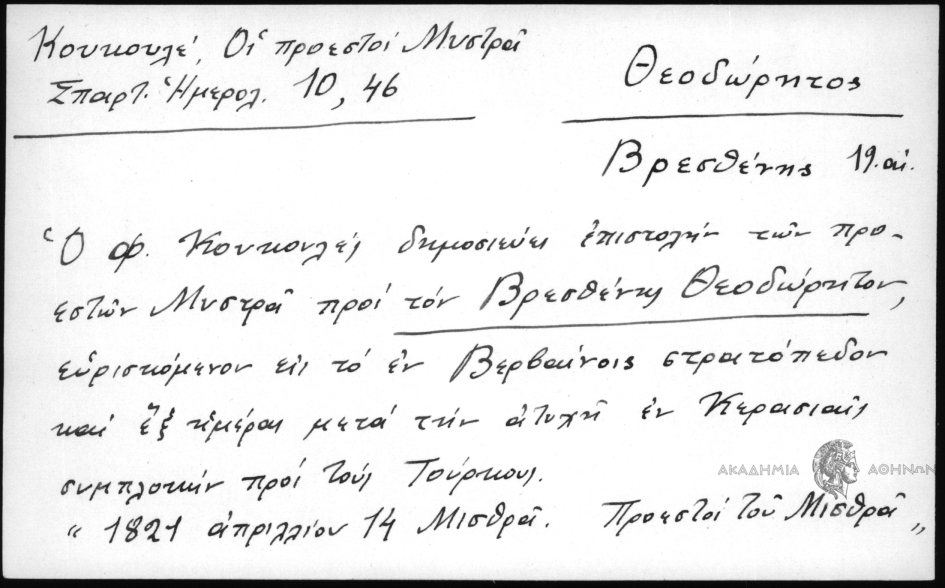 Κουκουλέ, Οἱ προεστοὶ Μυστρᾶ
Σπαρτ. Ἡμερολ. 10, 46
Θεοδώρητος
Βρεσθένης 19. αἰ.
Ὁ Φ. Κουκουλές δημοσιεύει ἐπιστολήν τῶν προ-
εστῶν Μυστρᾶ πρός τόν Βρεσθένης Θεοδώρητον,
εὑρισκόμενον εἰς τό ἐν Βερβαίνοις στρατόπεδον
καί ἕξ ἡμέρας μετά τήν ἀτυχῆ ἐν Κερασιαῖς
συμπλοκήν πρός τούς Τούρκους.
„ 1821 ἀπριλλίου 14 Μισθρᾶ. Προεστοί τοῦ Μισθρᾶ „
ΑΚΑΔΗΜΙΑ ΑΘΗΝΩΝ